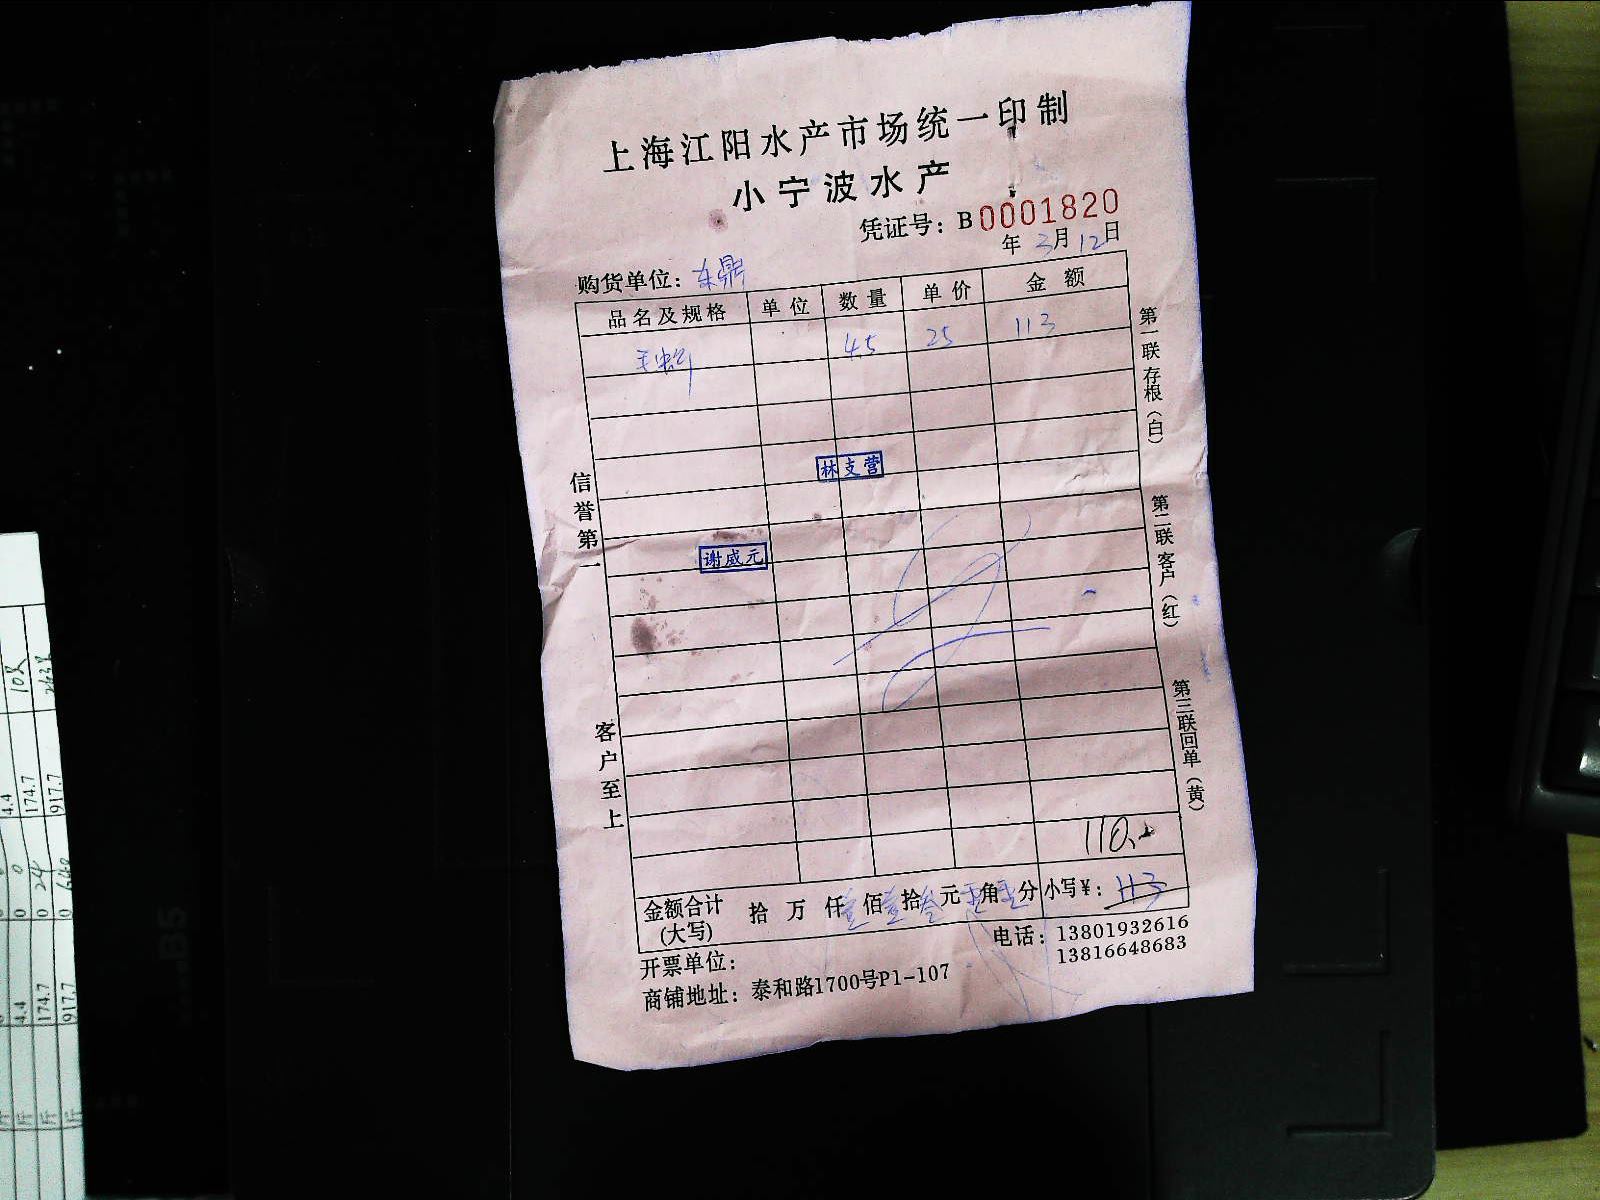 上海江阳水产市场统一印制
小宁波水产
凭证号：B0001820
年 3月12日
购货单位：东鼎
品名及规格 单位 数量 单价 金额
45 25 113
林支营
谢威元
信誉第一
客户至上
第一联存根（白）
第二联客户（红）
第三联回单（黄）
110.
金额合计（大写） 拾 万 仟壹佰壹拾叁元零角零分 小写¥：113
电话：13801932616
13816648683
开票单位：
商铺地址：泰和路1700号P1-107
10x
4.4 0 0 4.4
174.7 24 0 174.7
917.7 640 0 917.7
B5